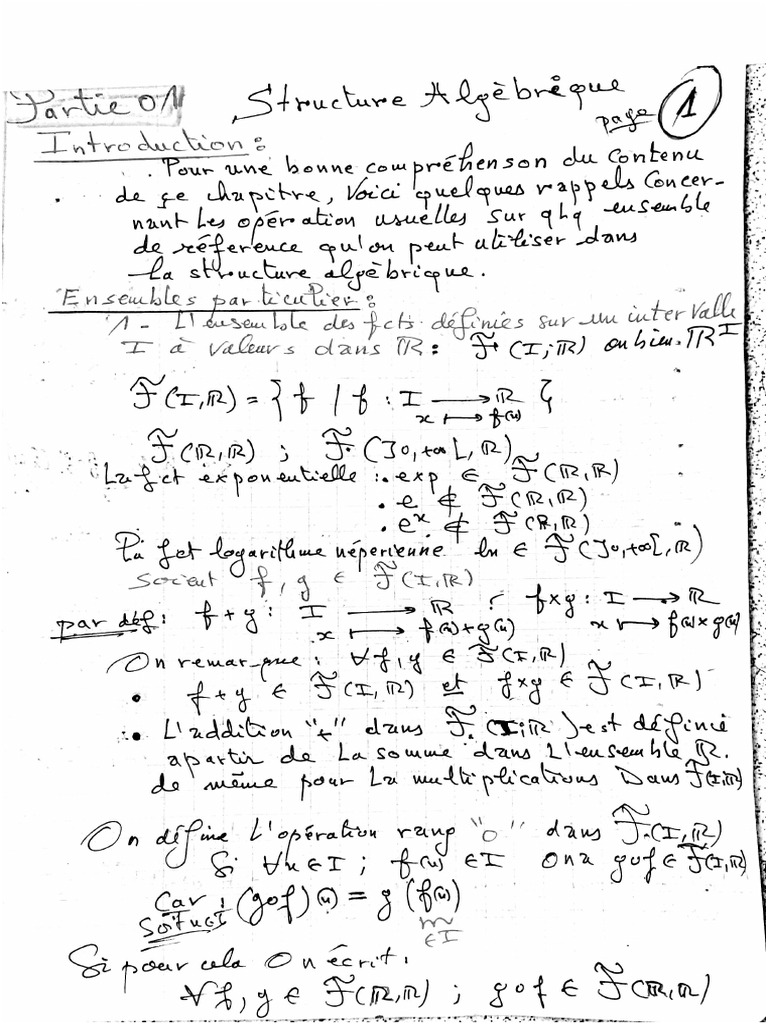 Partie 01 Structure Algèbrique page 1
Introduction :
. Pour une bonne compréhenson du contenu
de çe chapitre, Voici quelques rappels Concer-
nant Les opération usuelles sur qlq ensemble
de réference qu'on peut utiliser dans
La structure algèbrique.
Ensembles particulier :
1 - L'ensemble des fcts définies sur un intervalle
I à valeurs dans ℝ : F̃ (I ; ℝ) ou bien. ℝ^I
F̃(I, ℝ) = { f / f : I ⟶ ℝ }
x ⟼ f(x)
F̃(ℝ, ℝ) ; F̃. (]0, +∞[, ℝ)
La fct exponentielle : . exp ∈ F̃(ℝ, ℝ)
. e ∉ F̃(ℝ, ℝ)
. e^x ∉ F̃(ℝ, ℝ)
La fct logarithme néperienne ln ∈ F̃(]0, +∞[, ℝ)
Soient f, g ∈ F̃(I, ℝ)
par déf : f + g : I ⟶ ℝ ; f × g : I ⟶ ℝ
x ⟼ f(x) + g(x) x ⟼ f(x) × g(x)
On remar-que : ∀ f, g ∈ F̃(I, ℝ)
• f + g ∈ F̃(I, ℝ) et f × g ∈ F̃(I, ℝ)
• L'addition "+" dans F̃. (I ; ℝ) est définie
apartir de La somme dans L'ensemble ℝ.
de même pour La multiplications Dans F̃(I, ℝ)
On défine L'opération rang "o" dans F̃.(I, ℝ)
Si ∀x ∈ I ; f(x) ∈ I ona gof ∈ F̃(I, ℝ)
Car : (gof)(x) = g(f(x))
Soit x∈I ∈ I
Si pour cela On écrit :
∀ f, g ∈ F̃(ℝ, ℝ) ; gof ∈ F̃(ℝ, ℝ)